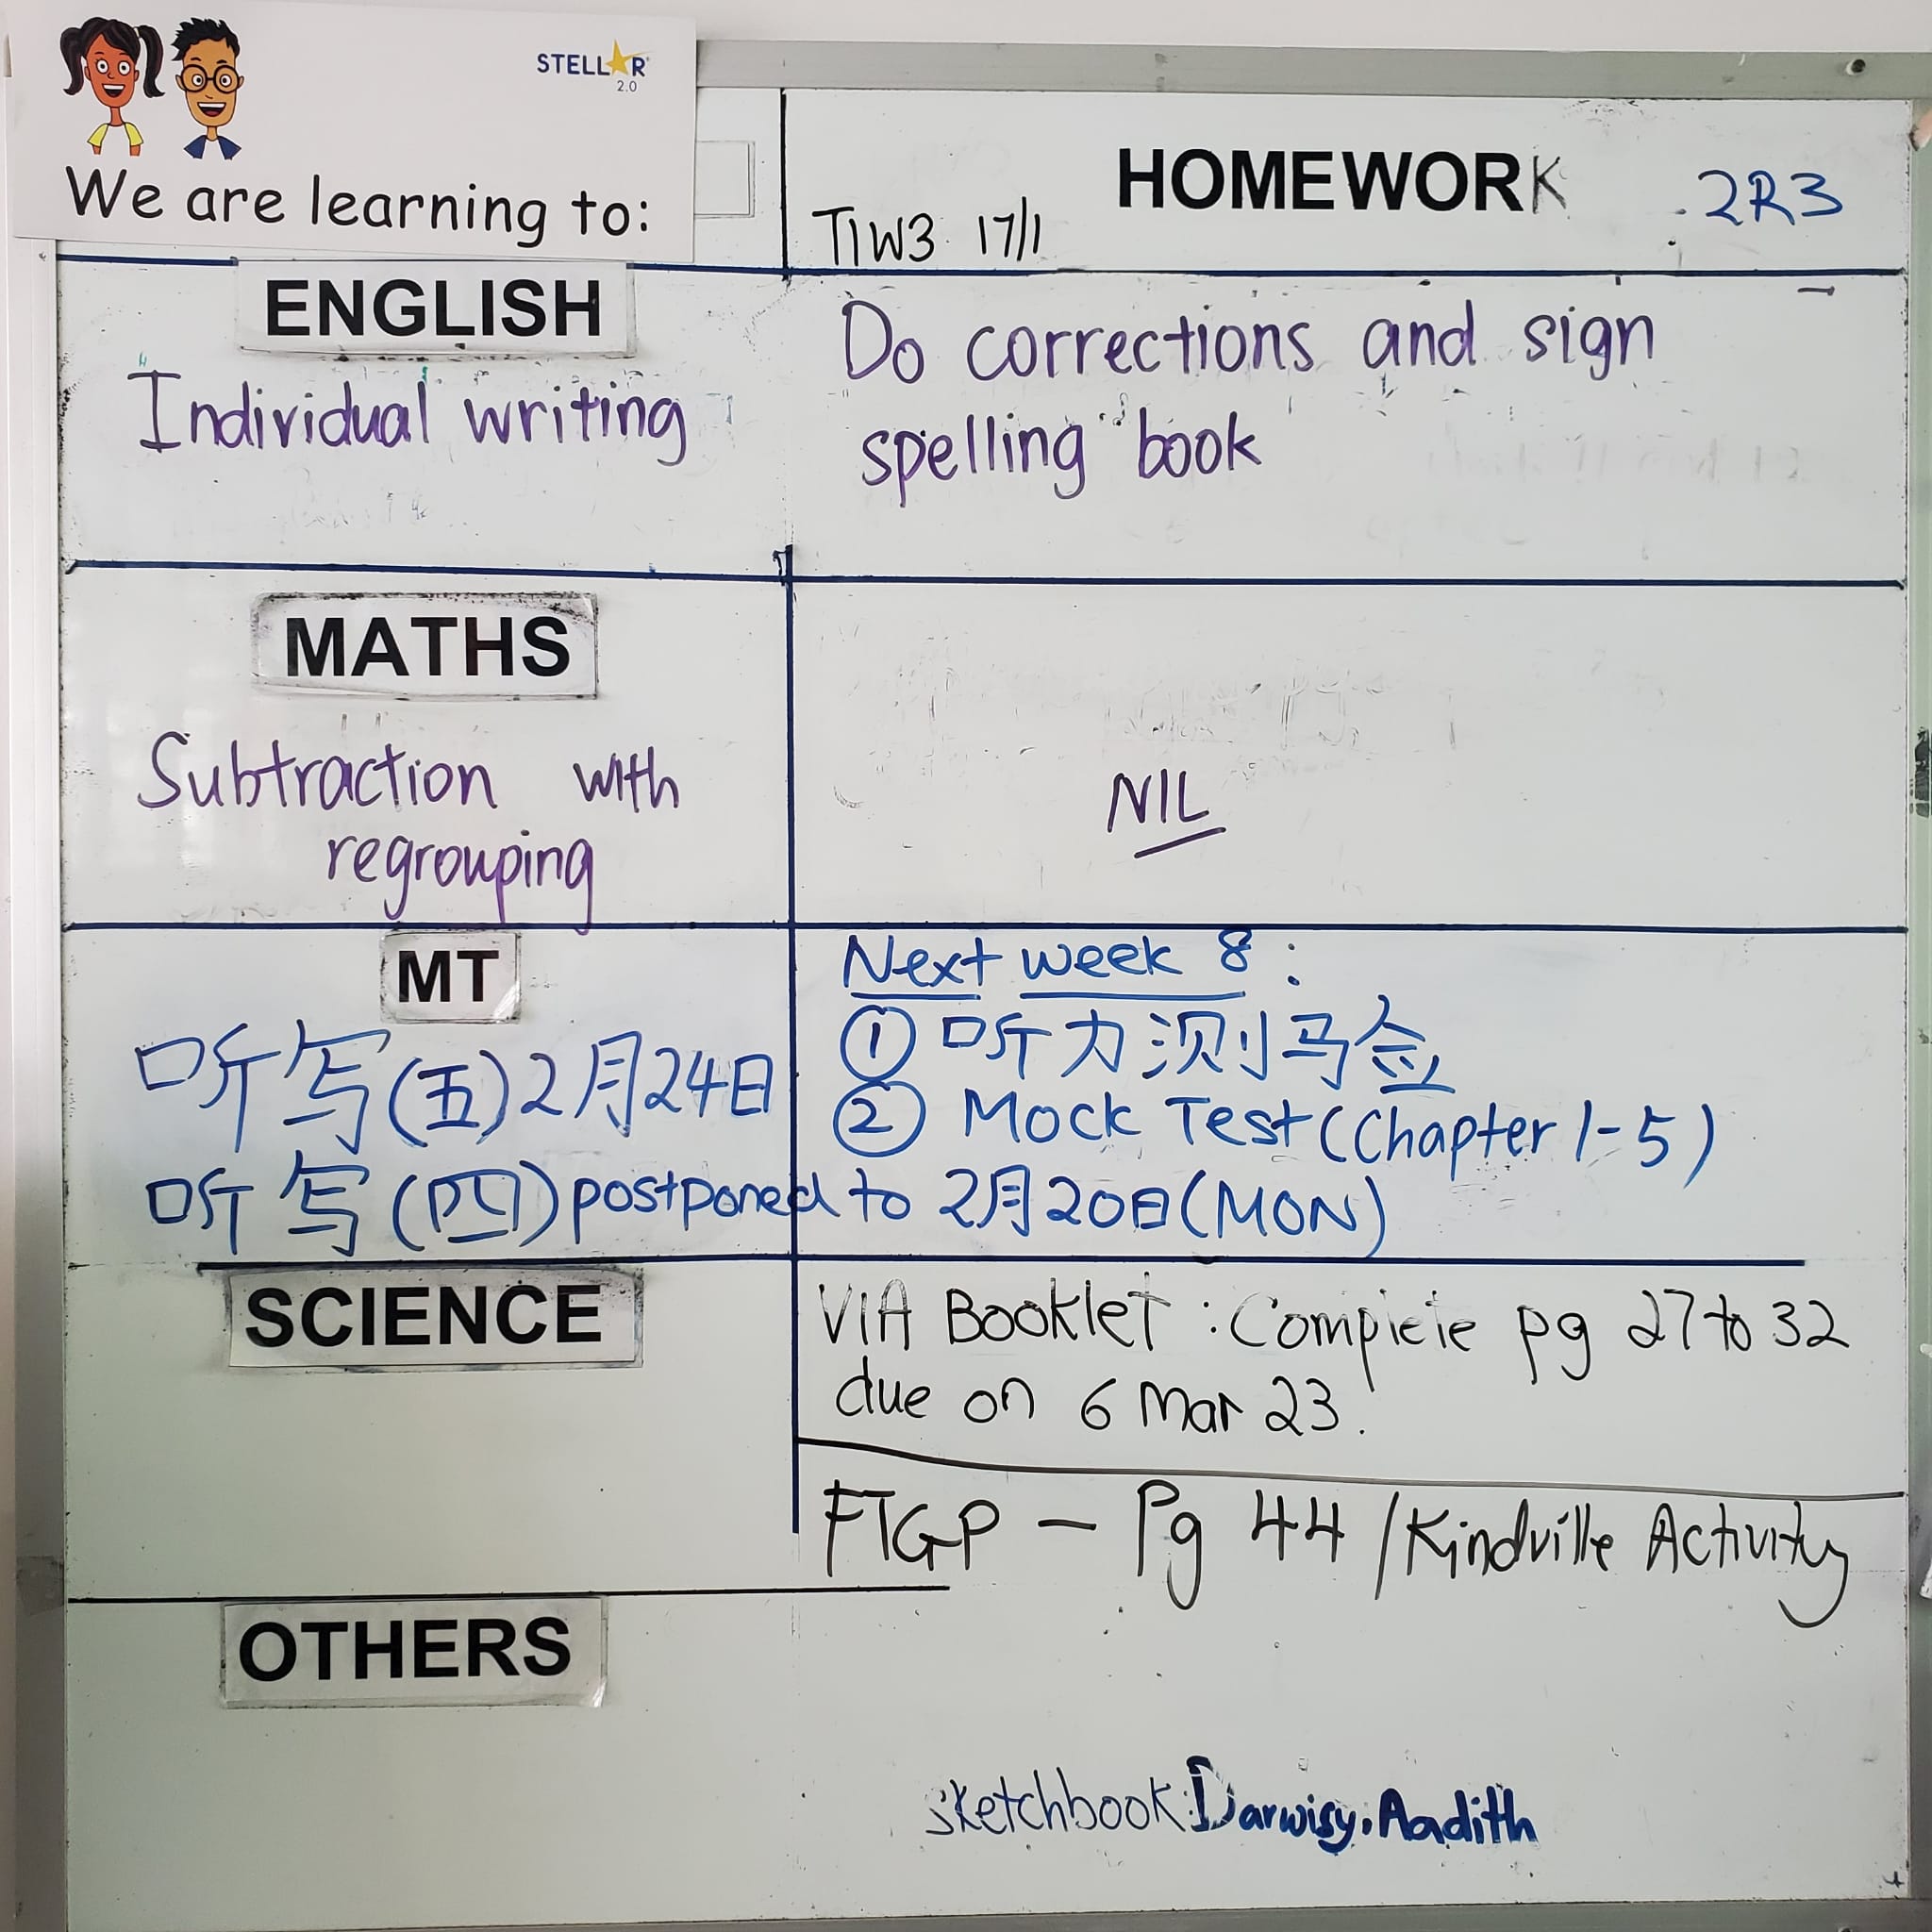 STELLAR 2.0
We are learning to:
HOMEWORK 2R3
T1W3 17/1
ENGLISH
Individual writing
Do corrections and sign
spelling book
MATHS
Subtraction with
regrouping
NIL
MT
听写(五)2月24日
Next week 8:
① 听力测验
② Mock Test (Chapter 1-5)
听写(四) postponed to 2月20日(MON)
SCIENCE
VIA Booklet : Complete pg 27 to 32
due on 6 Mar 23.
FTGP - Pg 44 / Kindville Activity
OTHERS
sketchbook: Darwisy, Aadith